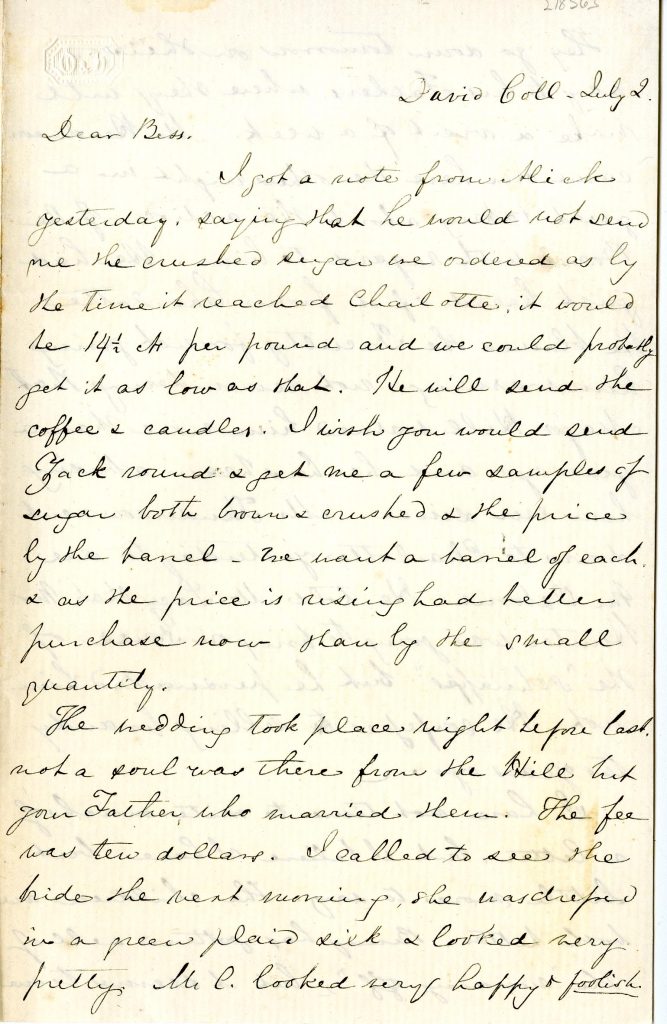 218565
David Coll - July 2.
Dear Bess.
I got a note from Alick
yesterday, saying that he would not send
me the crushed sugar we ordered as by
the time it reached Charlotte, it would
be 14½ cts per pound and we could probably
get it as low as that. He will send the
coffee & candles. I wish you would send
Zack round & get me a few samples of
sugar both brown & crushed & the price
by the barrel - we want a barrel of each.
& as the price is rising had better
purchase now than by the small
quantity.
The wedding took place night before last,
not a soul was there from the Hill but
your Father who married them. The fee
was ten dollars. I called to see the
bride the next morning, she was dressed
in a green plaid silk & looked very
pretty. Mr C. looked very happy & foolish.